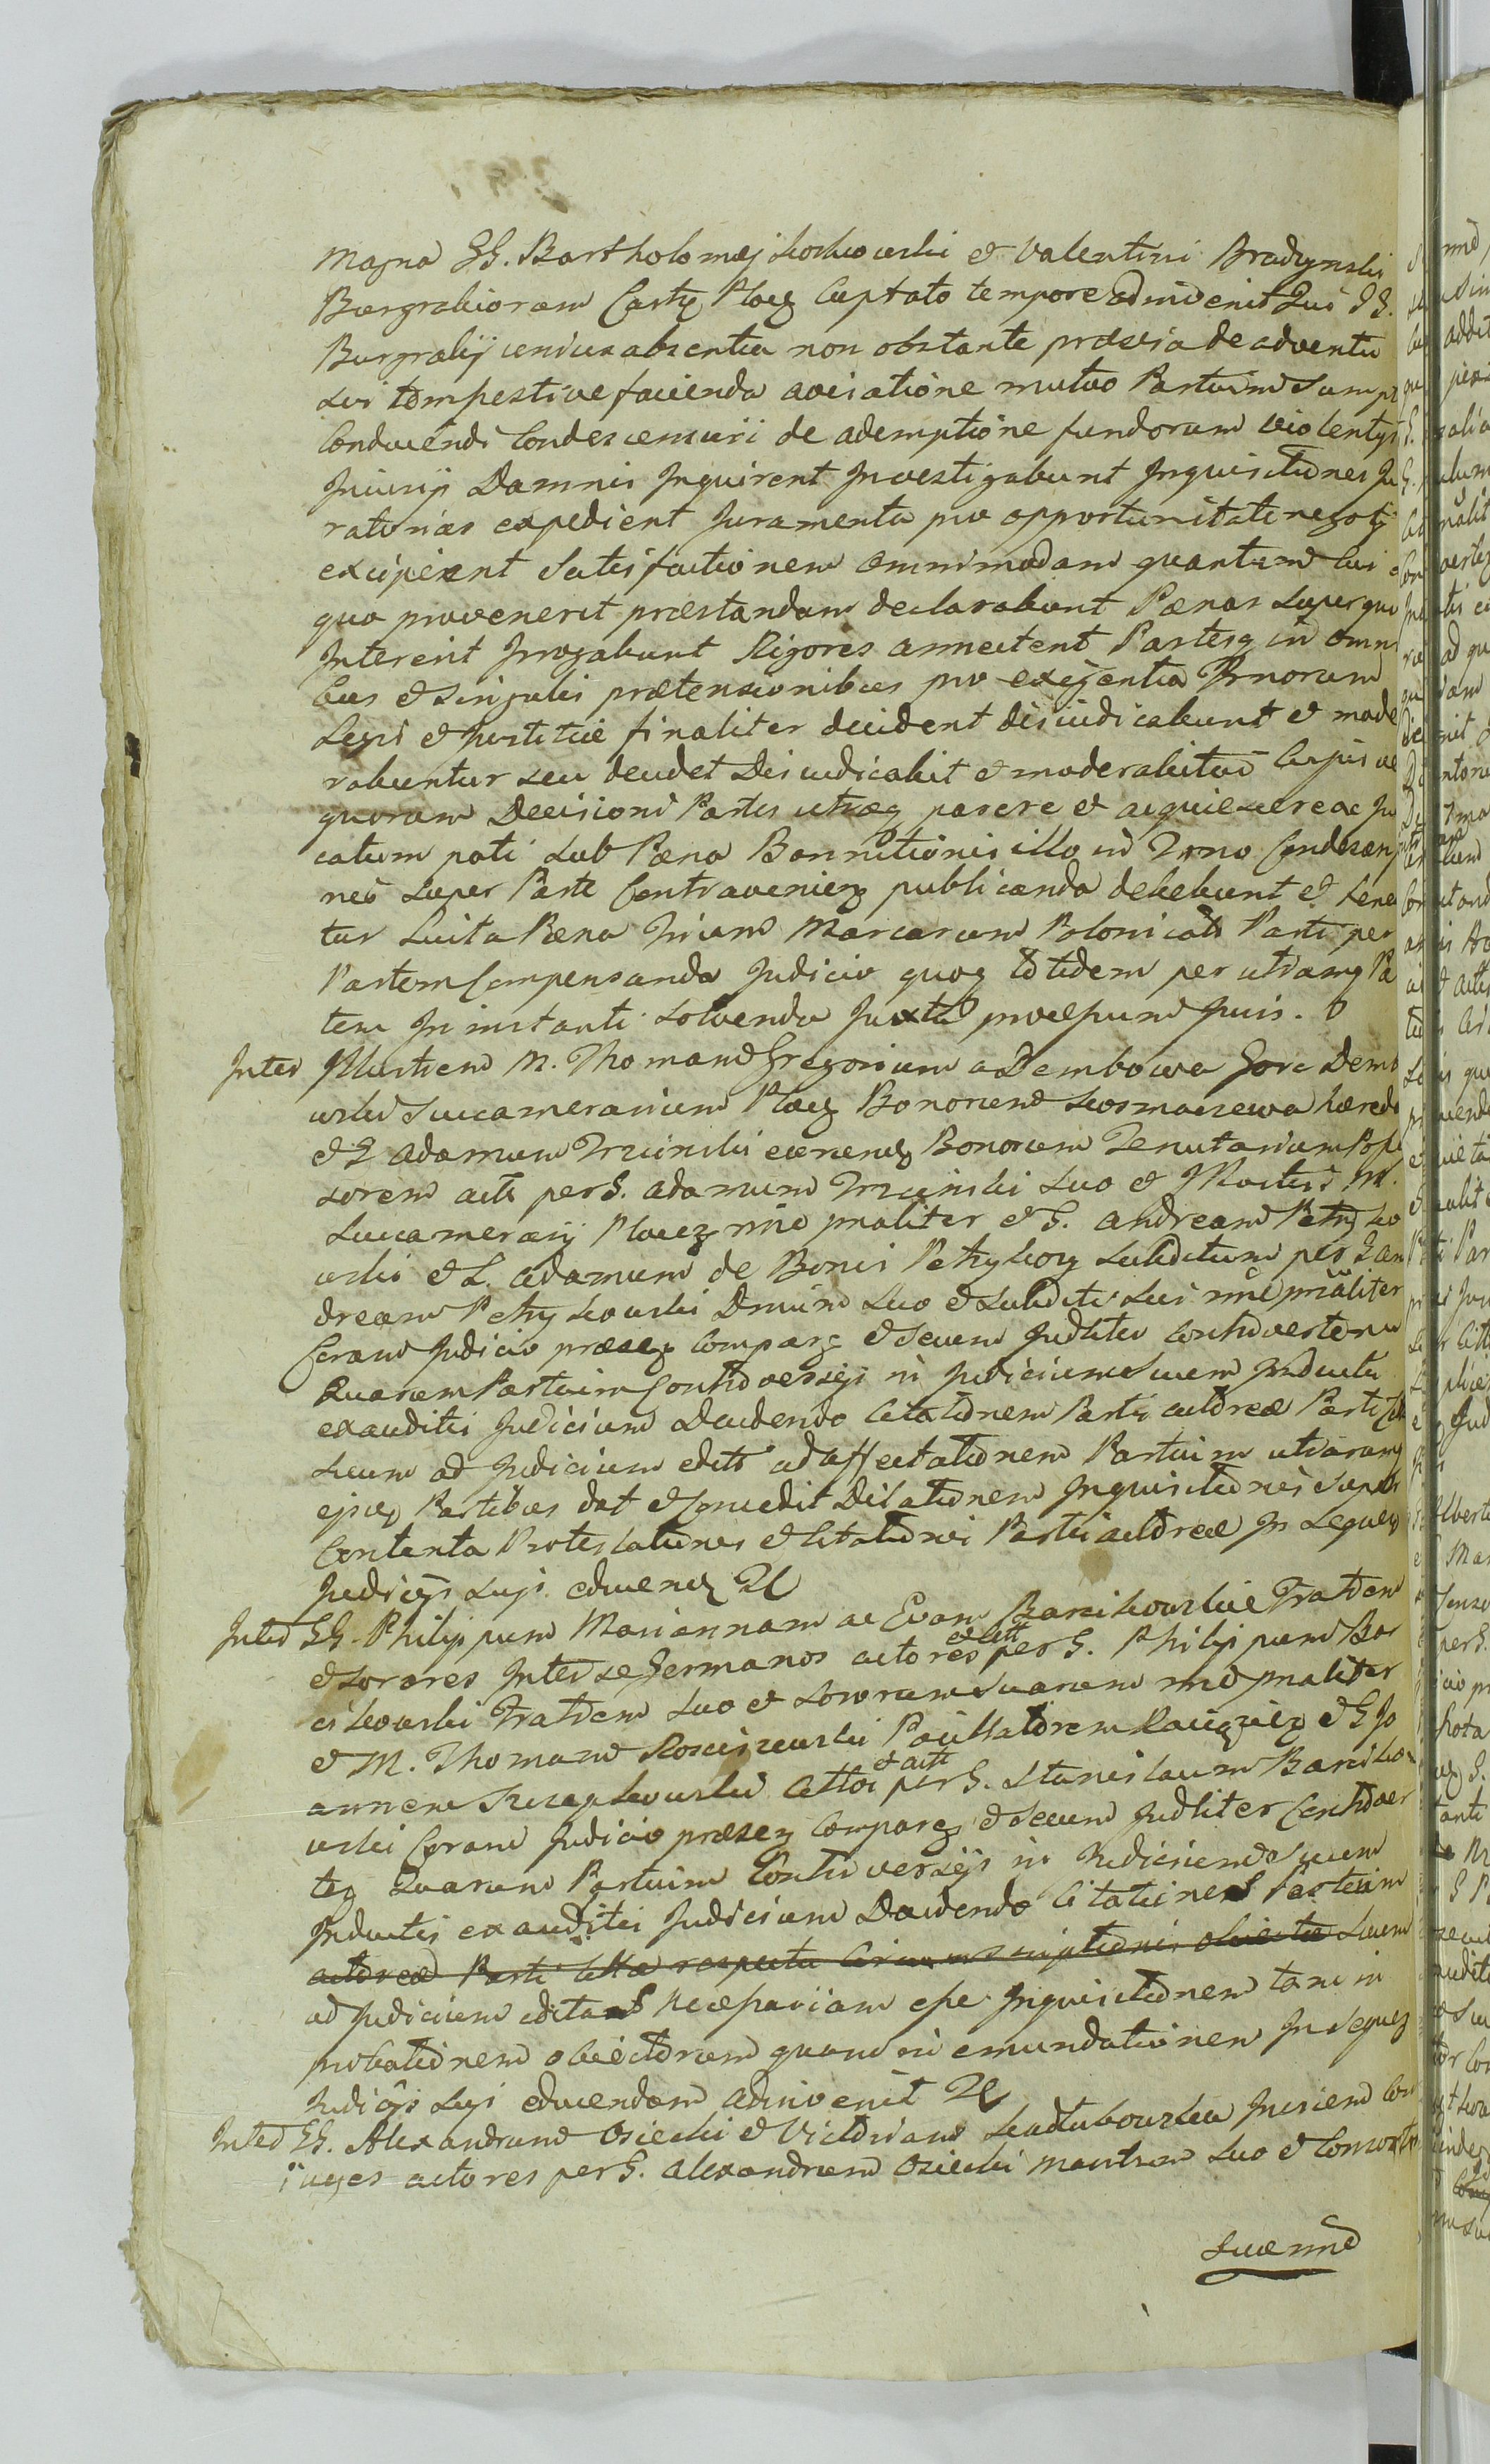 Magna GG. Bartholomæj et Valentini Bradzynski
Burgrabiorum Castr Ploc Captato tempore adinvenit Qui GG.
Burgrabij unius absentia non obstante prævia de adventu
sui tempestive facienda avisatione mutuo Partium Sumptu
Conducendi Condescensuri de ademptione fundorum violentijs
Injurijs Damnis Inquirent Investigabunt Inquisitiones Ju
ratorias expedient Juramenta pro opportunitate negotij
excipient Satisfactionem omnimodam quantum cui
quo provenerit præstandam declarabunt Pænas super quo
Intererit Irrogabunt Rigores annectent Partesq in omni
bus et singulis prætensionibus pro exigentia
Legis et Justitiæ finaliter decident dijudicabunt et mode
rabuntur seu decidet Dijudicabit et moderabitur Cujus vel
quorum Decisioni Partes utræq parere et acquiescere ac Ju
catum pati Sub Pæna Bannitionis illo in Condescen
nis super Parte Contravenien publicanda debebunt et tene
tur Luita Pæna Trium Marcarum Polonical Parti per
Partem Compensanda Judicio quoq totidem per utramq Pa
tem In instanti solvenda Juxta præscriptum Juris.
Inter Illustrem M. Thomam Gregorium a Dembowa Gora Demb
wski Succamerarium Ploc Bonorum hæred
et G Adamum Trzcinski eorundem Bonorum Tenutarium
sorem act per G. Adamum Trzcinski suo et Illustris M.
Succamerarij Plocen nne prnaliter et G. Andream
wski et L. Adamum de Bonis Subditum per G. An
dream Dnum suo et subditi sui nne prnaliter
Coram Judicio præsen Comparen et secum Judliter Controverten
Quarum Partium Controversijs in Judicium suum Inductis
exauditis Judicium Decidendo Citationem Parti actoreæ Parti
secum ad Judicium edit ad affectationem Partium utrarumq
ejusq Partibus dat et concedit Dilationem Inquisitionis super
Contenta Protestationis et Citationis Partis actoreæ In sequen
Judicijs suis educend
Inter GG. Philippum Mariannam ac Evam Barcikowskie Fratrem
et sorores Inter se Germanos actores et citt per G. Philippum Bar
cikowski Fratrem suo et sororum suarum nne prnaliter
et M. Thomam Rosciszewski Pocillatorem Raciązien et G Jo
annem citt et act per G. Stanislaum Barciko
wski Coram Judicio præsen Comparen et secum Judliter Controver
ten Quarum Partium Controversijs in Judicium suum
Inductis exauditis Judicium Decidendo Citationes Partium
actoreæ Parti cittæ respectu Circumscriptionis obiectæ secum
ad Judicium editas necessariam esse Inquisitionem tam in
probationem obiectorum quam in emundationem In sequen
Judicijs suis educendam adinvenit
Inter GG. Alexandrum Osiecki et Victoriam Invicem Con
juges actores per G. Alexandrum Osiecki maritum suo et Consortis
suæ nne